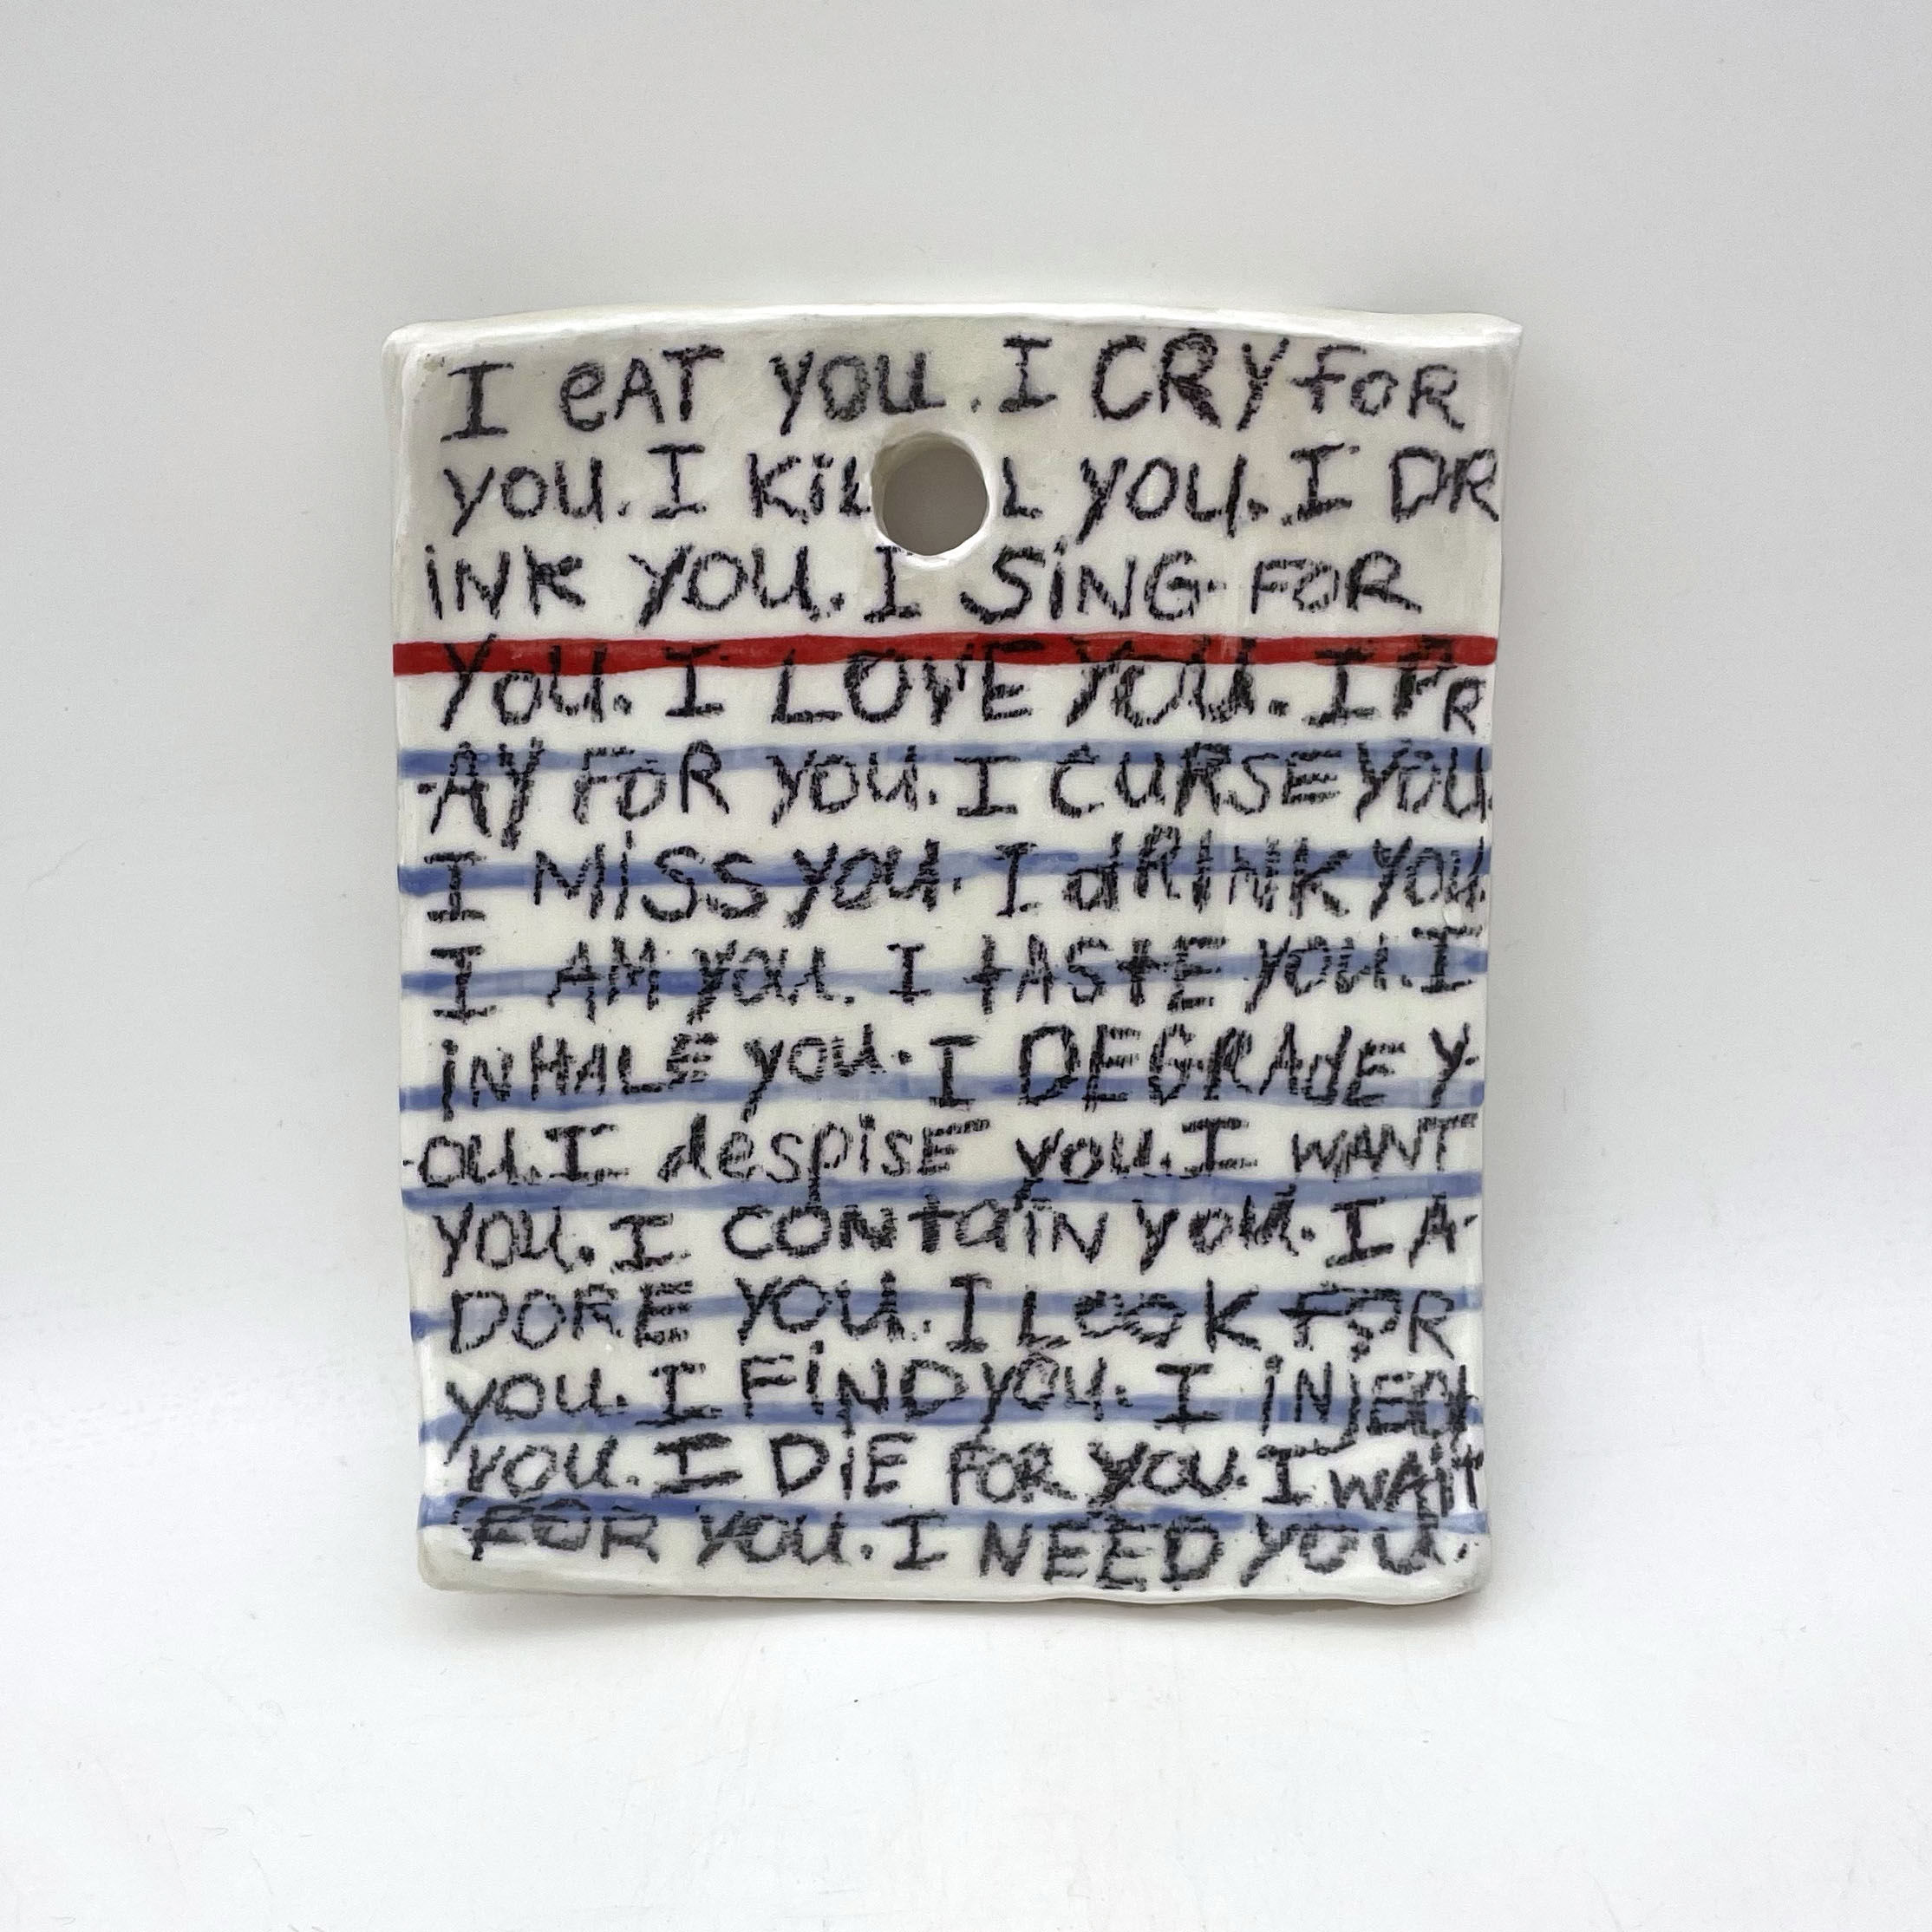 I eAT you. I CRY foR
you. I KiL L you. I DR
iNK YOU. I SiNG FOR
YoU. I LOVE YOU. I PR
-AY FOR YOU. I CURSE YOU.
I MiSS you. I dRINK YOU.
I AM you. I tAStE you. I
iNHALE you. I DEGRAdE Y-
-OU. I despisE you. I WANT
YOU. I CONtaiN you. I A-
DORE YOU. I LooK FOR
you. I FiND you. I iNjECt
YOU. I DiE FOR you. I WAit
FOR YOU. I NEED YOU.